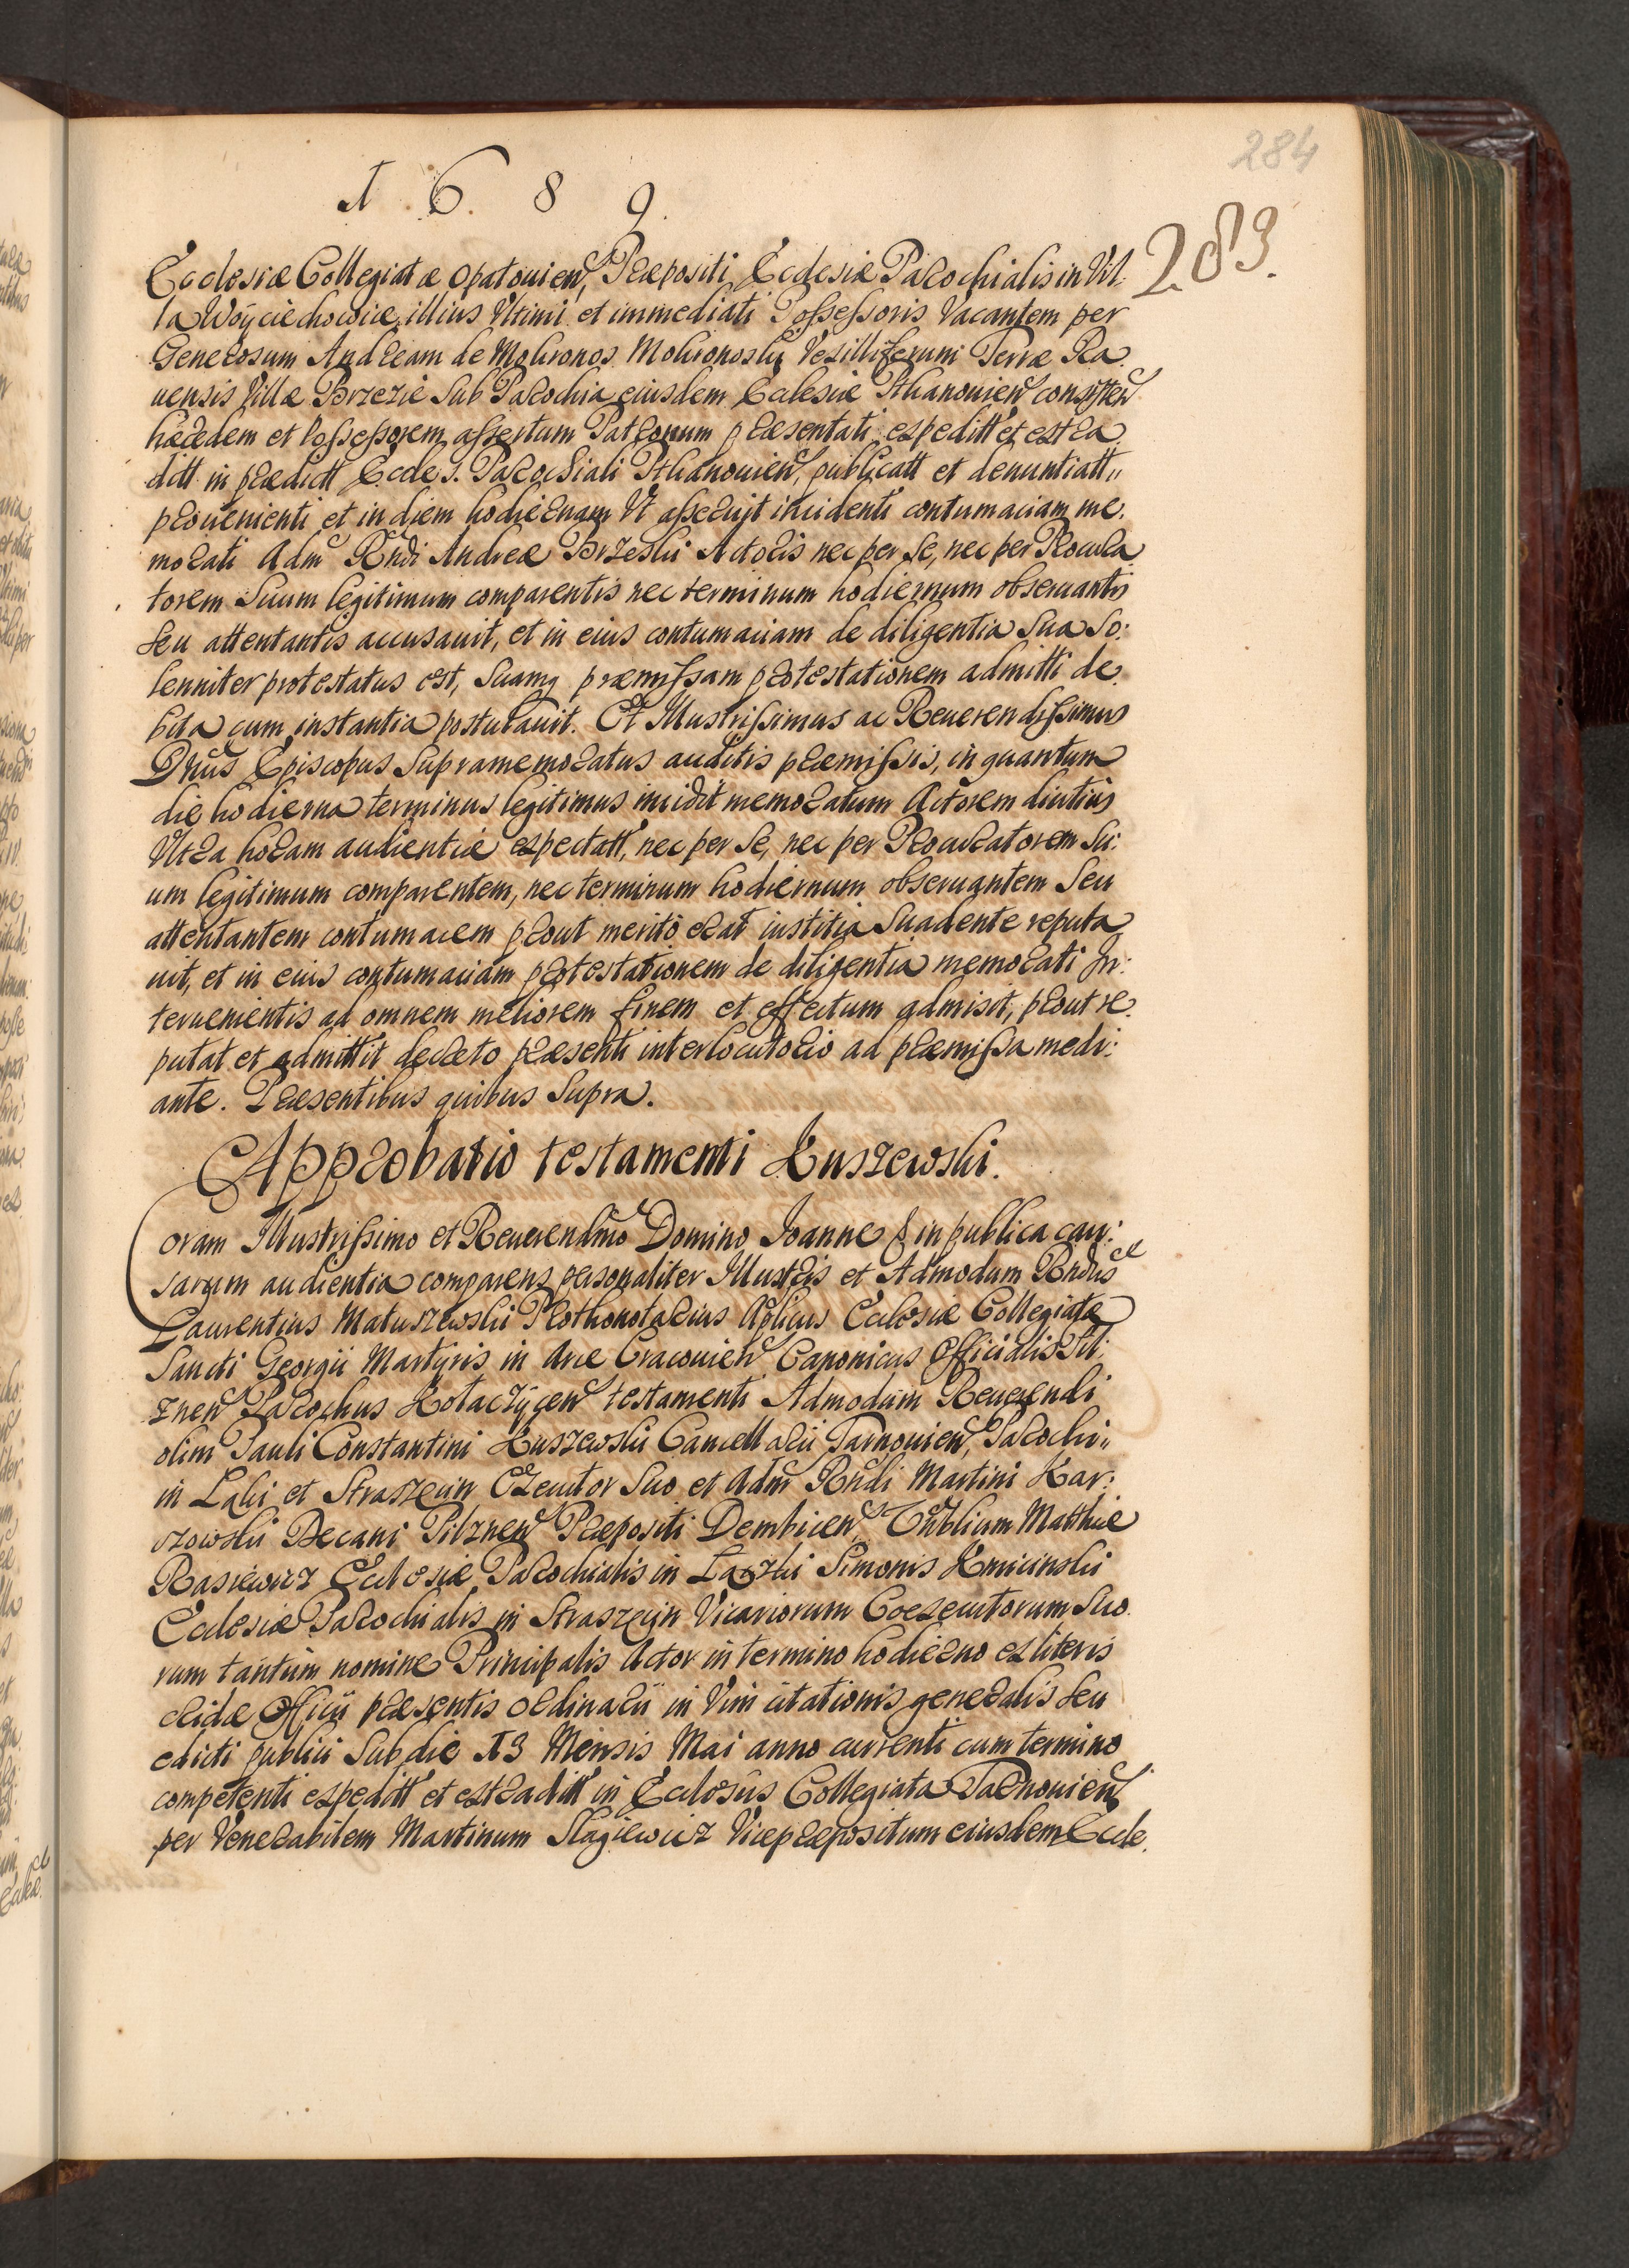 284
1 6 8 9.
283.
Ecclesiæ Collegiatæ Opatouien, Præpositi Ecclesiæ Parochialis in Vil:
la Woyciechowice, illius Vltimi et immediati Possessoris Vacantem per
Generosum Andream de Mokronos Mokronoski Vexilliferum Terræ Ra:
uensis Villæ Brzezie Sub Parochia eiusdem Ecclesiæ Pthanouien consisten
hæredem et possessorem assertum Patronum præsentati expeditt et extra
ditt in prædictt Eccles. Parochiali Pthanouien, publicatt et denuntiatt,,
prouenienti et in diem hodiernam Vt asseruit incidenti contumaciam me:
morati Adm Rndi Andreæ Brzeski Actoris nec per se, nec per Procura
torem Suum legitimum comparentis nec terminum hodiernum obseruantis
seu attentantis accusauit, et in eius contumaciam de diligentia Sua So:
lenniter protestatus est, Suamq præmissam protestationem admitti de
bita cum instantia postulauit. Et Illustrissimus ac Reuerendissimus
Dnus Episcopus Supramemoratus auditis præmissis, in quantum
die hodierna terminus legitimus incidit memoratum Actorem diutius
Vltra horam audientiæ expectatt, nec per se, nec per Procuratorem Su:
um legitimum comparentem, nec terminum hodiernum obseruantem Seu
attentantem contumacem prout merito erat iustitia Suadente reputa
uit, et in eius contumaciam protestationem de diligentia memorati In:
teruenientis ad omnem meliorem finem et effectum admisit, prout re:
putat et admittit decreto præsenti interlocutorio ad præmissa medi:
ante. Præsentibus quibus Supra.
Approbatio testamenti Kuszewski.
Coram Illustrissimo et Reuerendmo Domino Ioanne in publica cau:
sarum audientia comparens personaliter Illustris et Admodum Rndus
Laurentius Matuszewski Prothonotarius Aplicus Ecclesiæ Collegiatæ
Sancti Georgii Martyris in Arce Cracouien Canonicus Officialis Pil:
znen Parochus Kołaczycen testamenti Admodum Reuerendi
olim Pauli Constantini Kuszewski Cancellarii Tarnouien, Parochi,,
in Lạki et Straszecin Exeutor Suo et Adm Rndi Martini Kar:
szowski Decani Pilznen Præpositi Dembicen, Matthiæ
Rasiewicz Ecclesiæ Parochialis in Simonis Kmicinski
Ecclesiæ Parochialis in Straszęcin Vicariorum Coexecutorum Suo
rum tantum nomine Principalis Actor in termino hodierno ex literis
cridæ Officii præsentis Ordinarii in Vim citationis generalis seu
edicti publici Sub die 13 Mensis Mai anno currenti cum termino
competenti expeditt et extraditt in Ecclesiis Collegiata Tarnouien
per Venerabilem Martinum Vicepræpositum eiusdem Eccle.